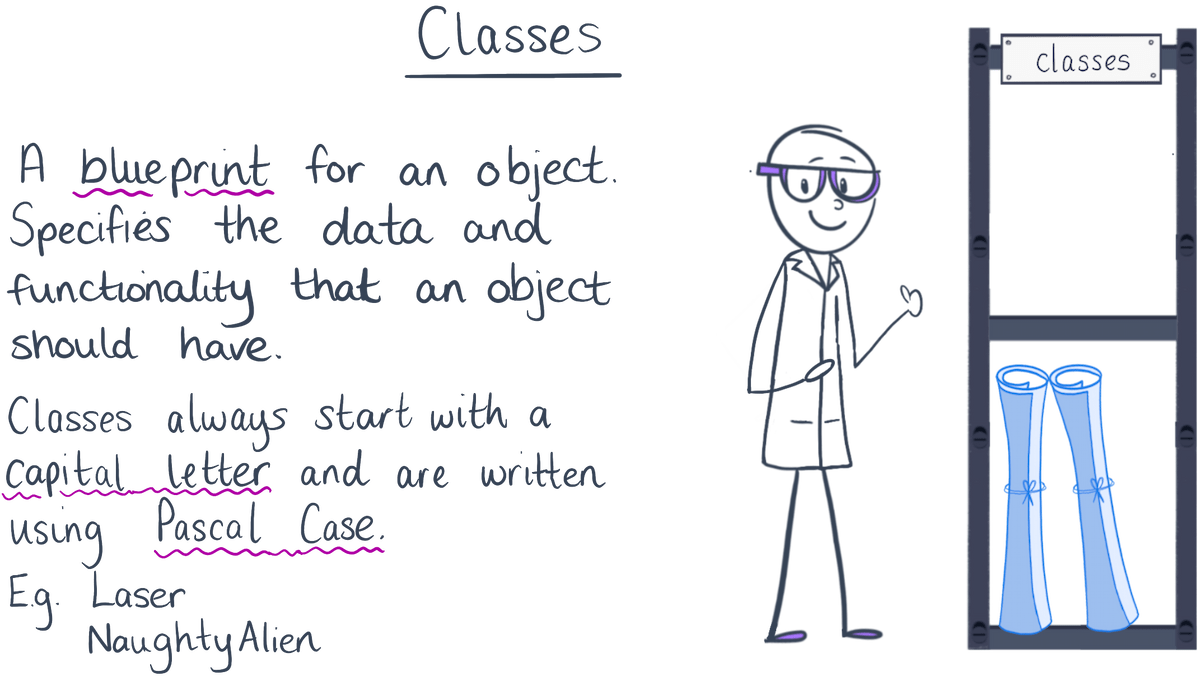 Classes
classes
A blueprint for an object.
Specifies the data and
functionality that an object
should have.
Classes always start with a
capital letter and are written
using Pascal Case.
E.g. Laser
NaughtyAlien